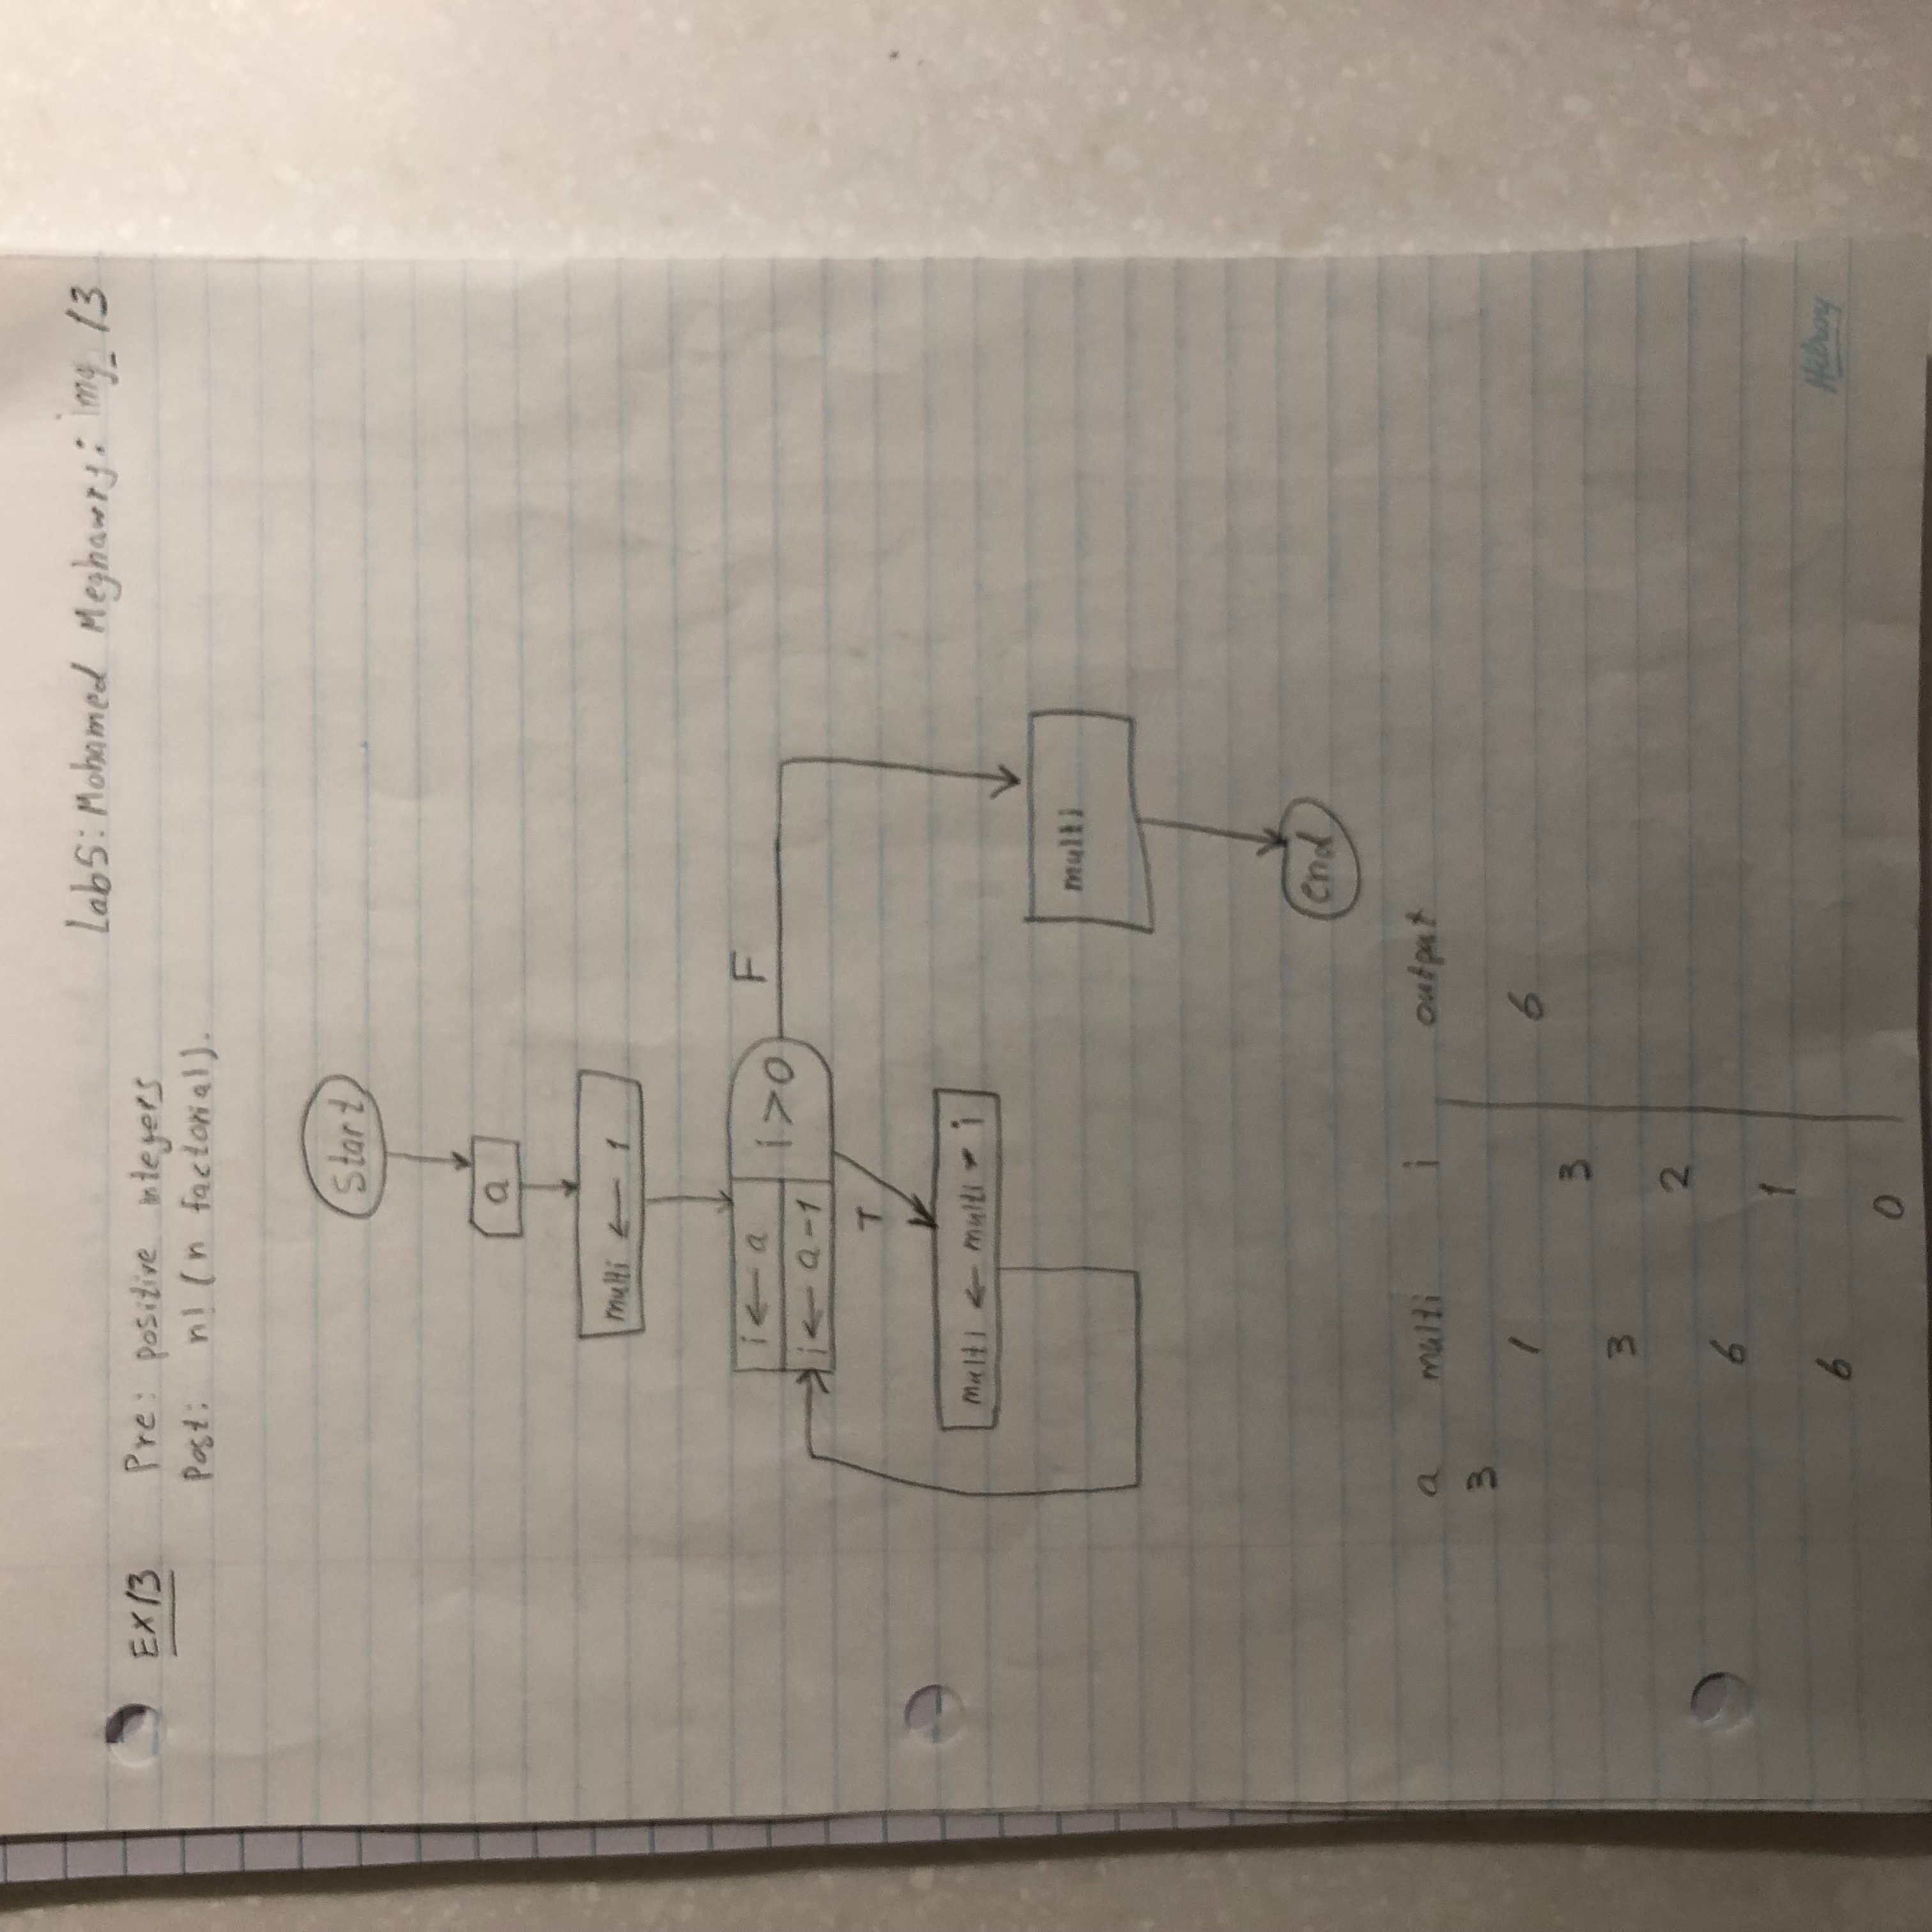 Lab5: Mohamed Meghawry: img_13
EX13 Pre: positive integers
Post: n! (n factorial).
Start
a
multi ← 1
i ← a
i > 0
F
i ← a-1
T
multi ← multi * i
multi
end
a multi i output
3
1 6
3
3
2
6
1
6
0
Hilroy